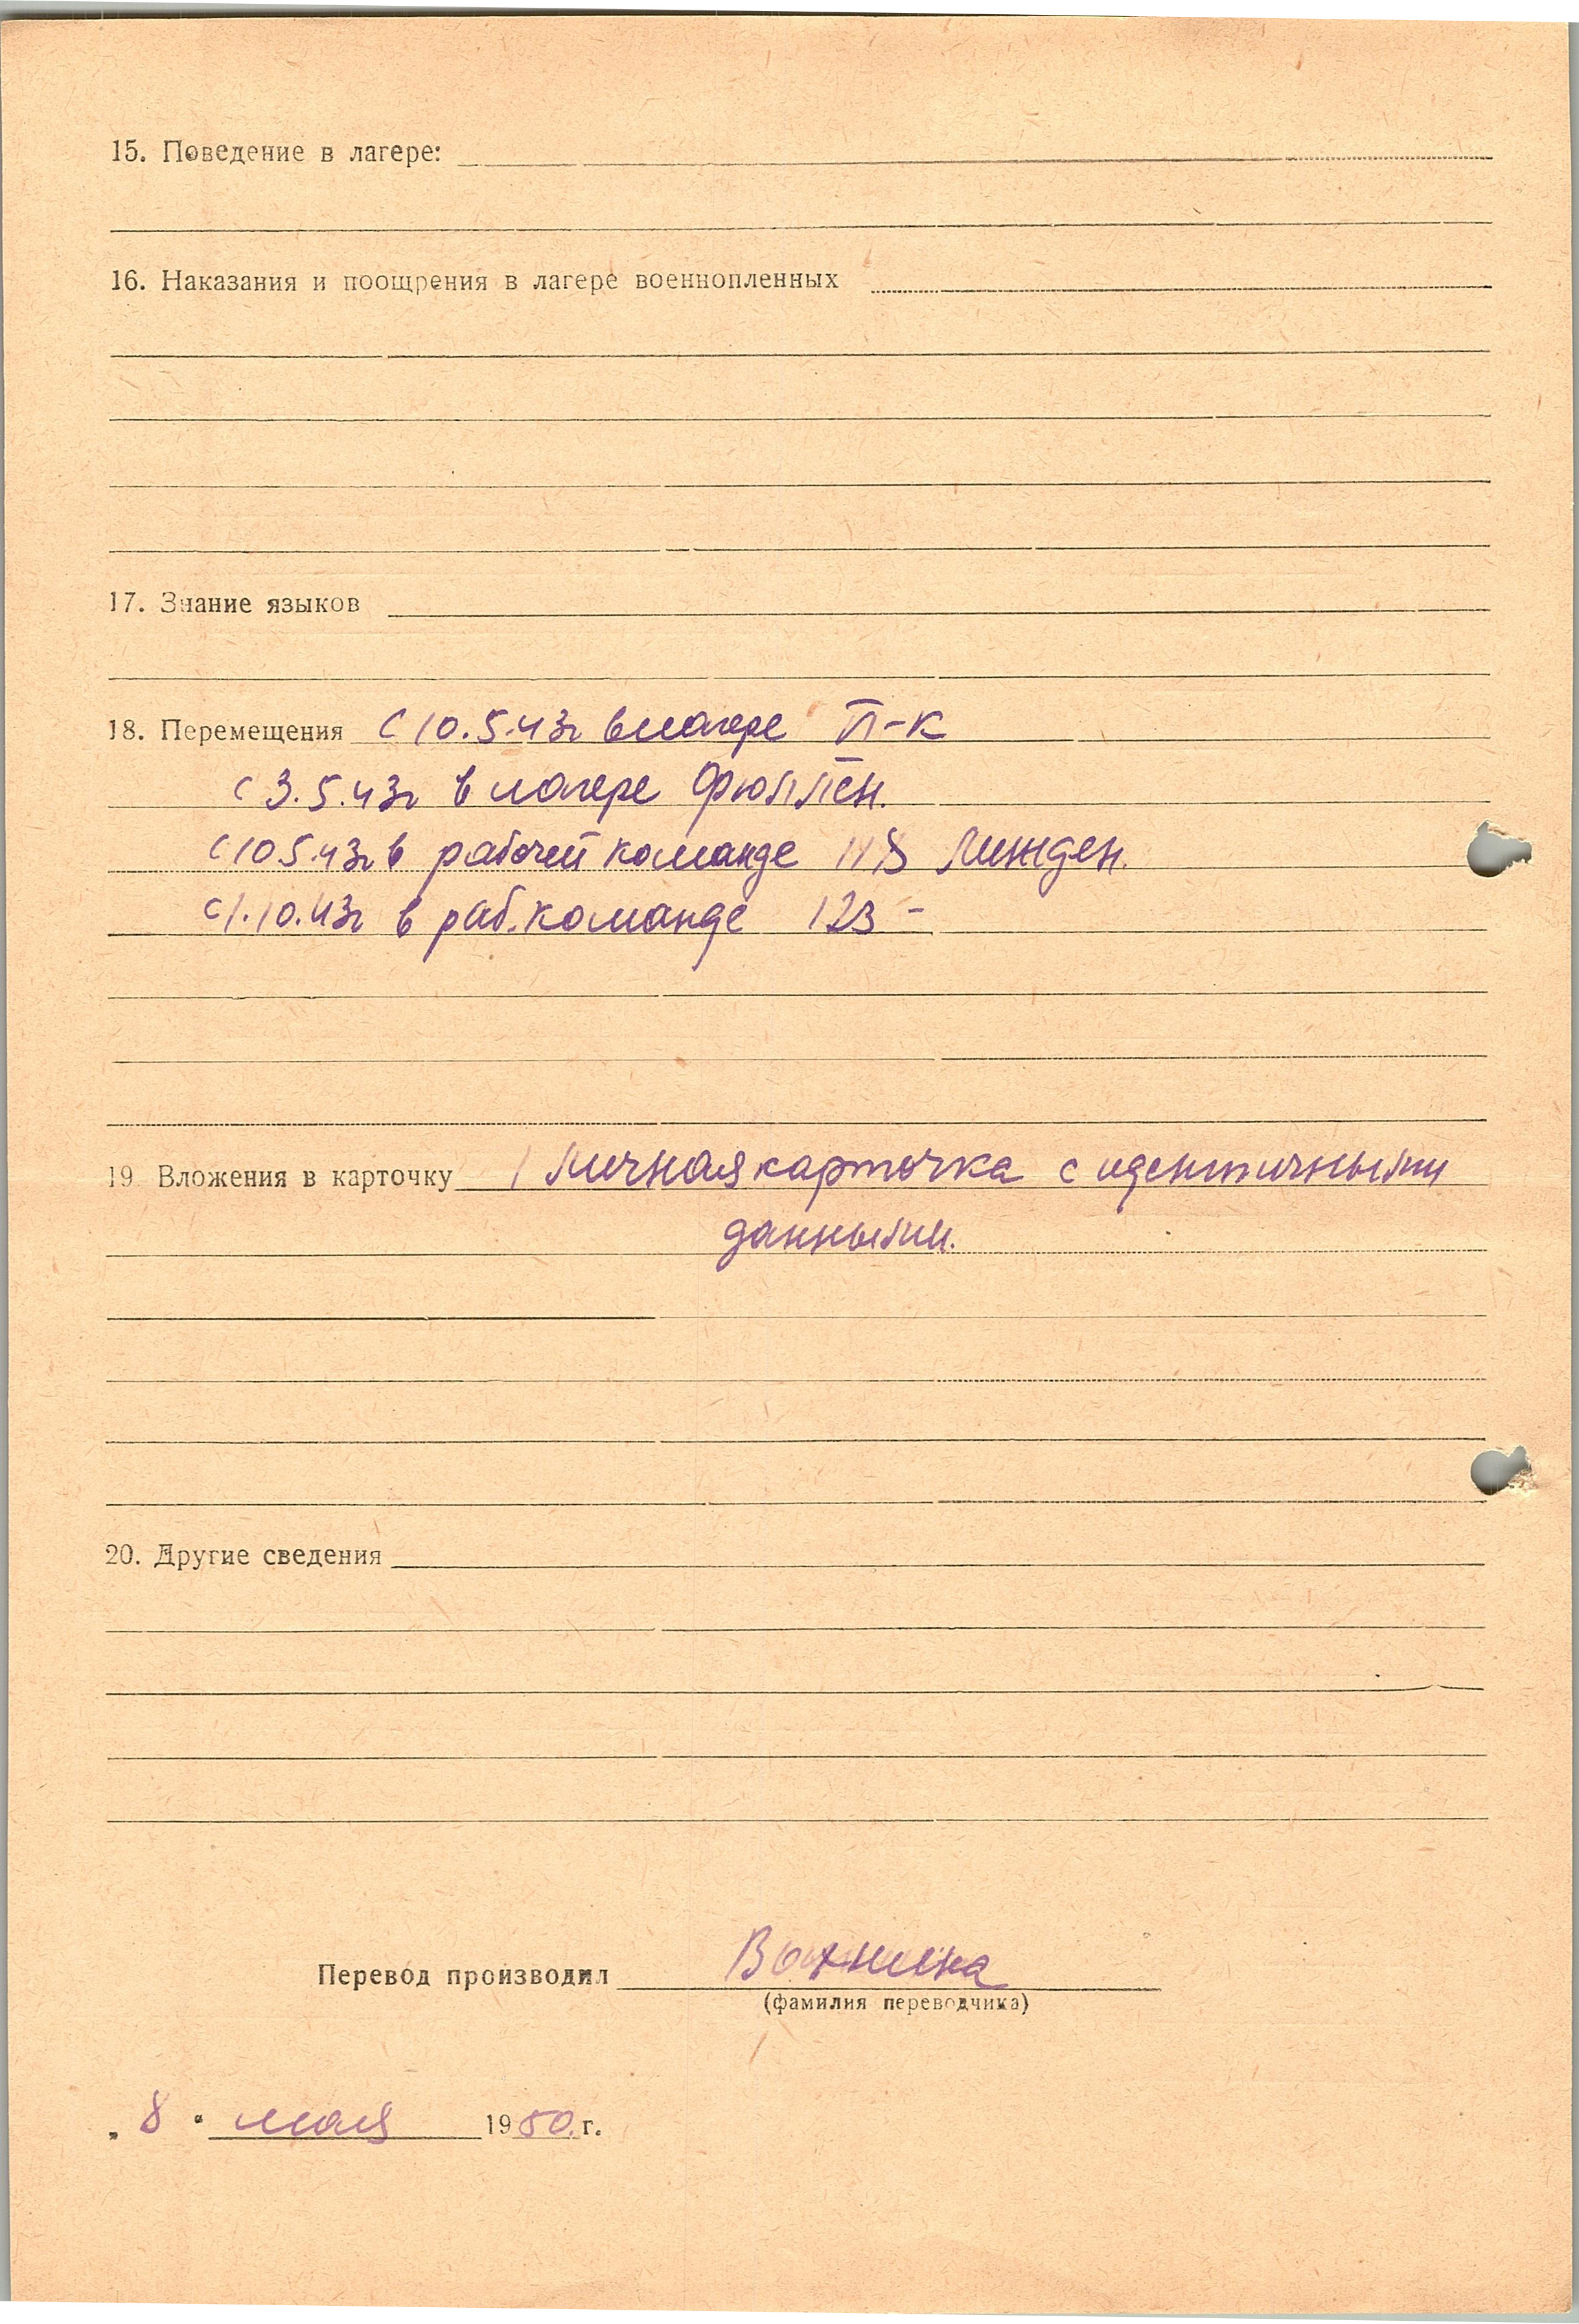 15. Поведение в лагере:
16. Наказания и поощрения в лагере военнопленных
17. Знание языков
18. Перемещения С 10.5.43г в лагере П-К
с 3.5.43г в лагере Фюллен.
с 10 5.43г в рабочей команде Линден.
с 1.10.43г в раб. команде 123 -
19. Вложения в карточку 1 личная карточка с идентичными
данными.
20. Другие сведения
Перевод производил
(фамилия переводчика)
„ 8 “ мая 1950. г.